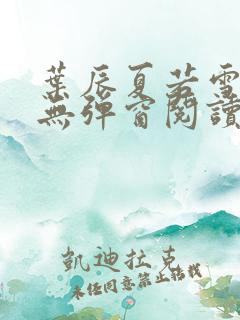 葉辰夏若雪
無彈窗閱讀
凱迪拉克
未經同意禁止轉載